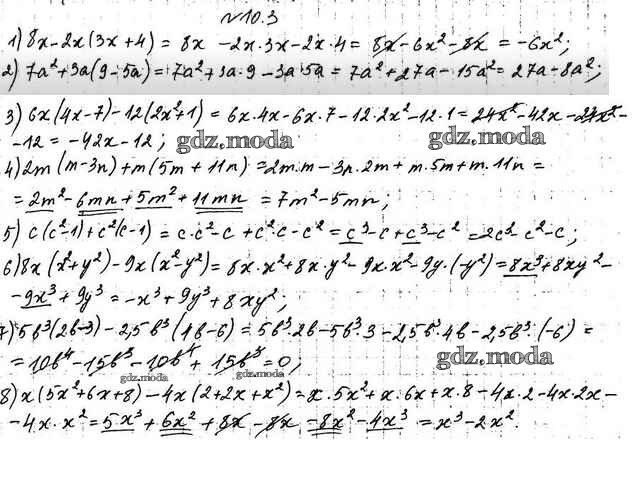 №10.3
1) 8x - 2x(3x + 4) = 8x - 2x·3x - 2x·4 = 8x - 6x² - 8x = -6x²;
2) 7a² + 3a(9 - 5a) = 7a² + 3a·9 - 3a·5a = 7a² + 27a - 15a² = 27a - 8a²;
3) 6x(4x - 7) - 12(2x² + 1) = 6x·4x - 6x·7 - 12·2x² - 12·1 = 24x² - 42x - 24x² -
- 12 = -42x - 12; gdz.moda gdz.moda
4) 2m(m - 3n) + m(5m + 11n) = 2m·m - 3n·2m + m·5m + m·11n =
= 2m² - 6mn + 5m² + 11mn = 7m² - 5mn;
5) c(c² - 1) + c²(c - 1) = c·c² - c + c²·c - c² = c³ - c + c³ - c² = 2c³ - c² - c;
6) 8x(x² + y²) - 9x(x² - y²) = 8x·x² + 8x·y² - 9x·x² - 9y·(-y²) = 8x³ + 8xy² -
- 9x³ + 9y³ = -x³ + 9y³ + 8xy²;
7) 5b³(2b - 3) - 2,5b³(4b - 6) = 5b³·2b - 5b³·3 - 2,5b³·4b - 2,5b³·(-6) =
= 10b⁴ - 15b³ - 10b⁴ + 15b³ = 0; gdz.moda
gdz.moda gdz.moda
8) x(5x² + 6x + 8) - 4x(2 + 2x + x²) = x·5x² + x·6x + x·8 - 4x·2 - 4x·2x -
- 4x·x² = 5x³ + 6x² + 8x - 8x - 8x² - 4x³ = x³ - 2x².